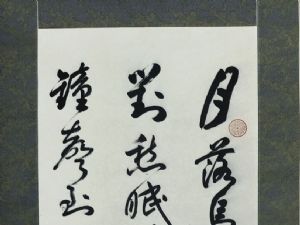 月落烏
對愁眠
鐘聲到